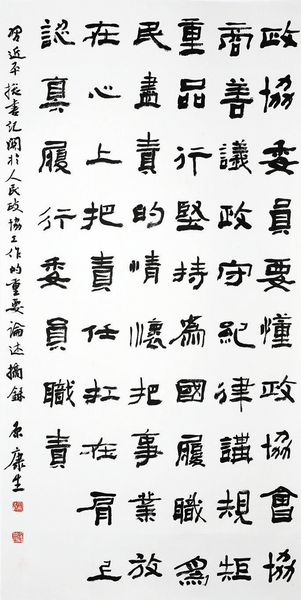 政協委員要懂政協會協
商善議政守紀律講規矩
重品行堅持為國履職為
民盡責的情懷把事業放
在心上把責任扛在肩上
認真履行委員職責
習近平總書記關於人民政協工作的重要論述摘録 康生